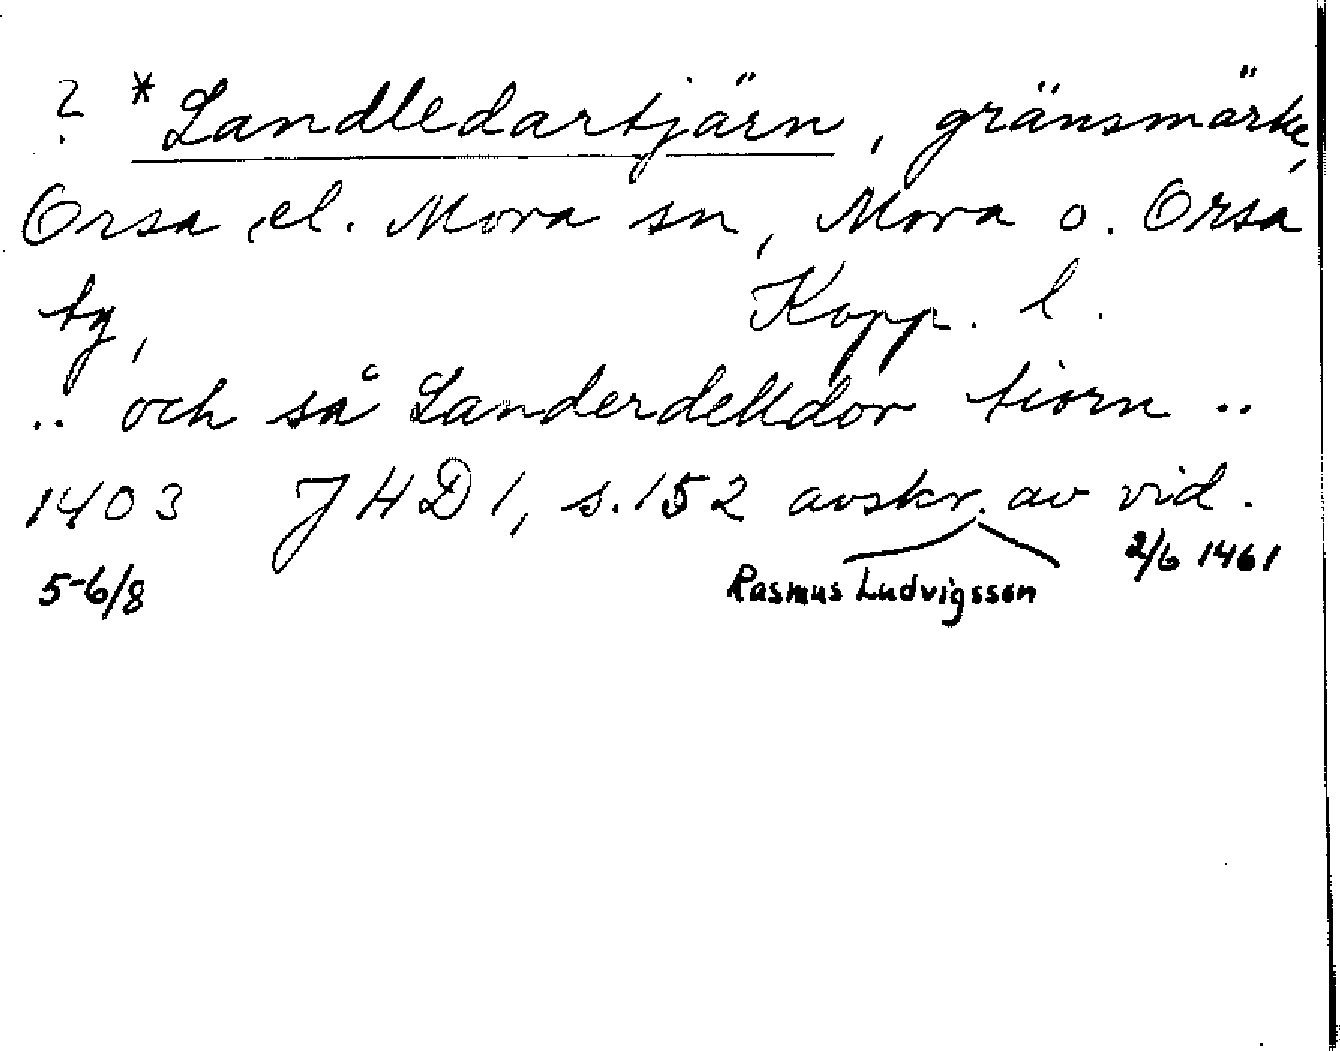 ? *Landledartjärn, gränsmärke,
Orsa el. Mora sn, Mora o. Orsa
tg, Kopp. l.
.. och så Landerdelldor tiorn ..
1403 JHD 1, s. 152 avskr. av vid.
5-6/8 Rasmus Ludvigsson 2/6 1461